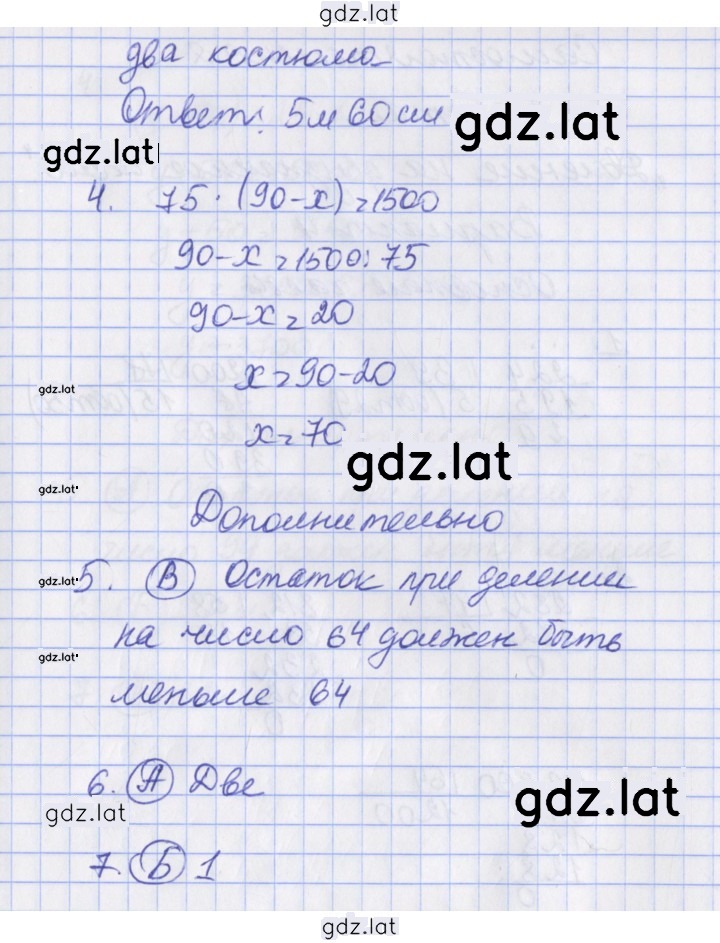 gdz.lat
два костюма
Ответ: 5м 60см
gdz.lat
gdz.lat
4. 75 · (90-x) = 1500
90-x = 1500:75
90-x = 20
x = 90-20
gdz.lat
x = 70
gdz.lat
gdz.lat
Дополнительно
5. В Остаток при делении
gdz.lat
на число 64 должен быть
gdz.lat
меньше 64
6. А Две
gdz.lat
gdz.lat
7. Б 1
gdz.lat